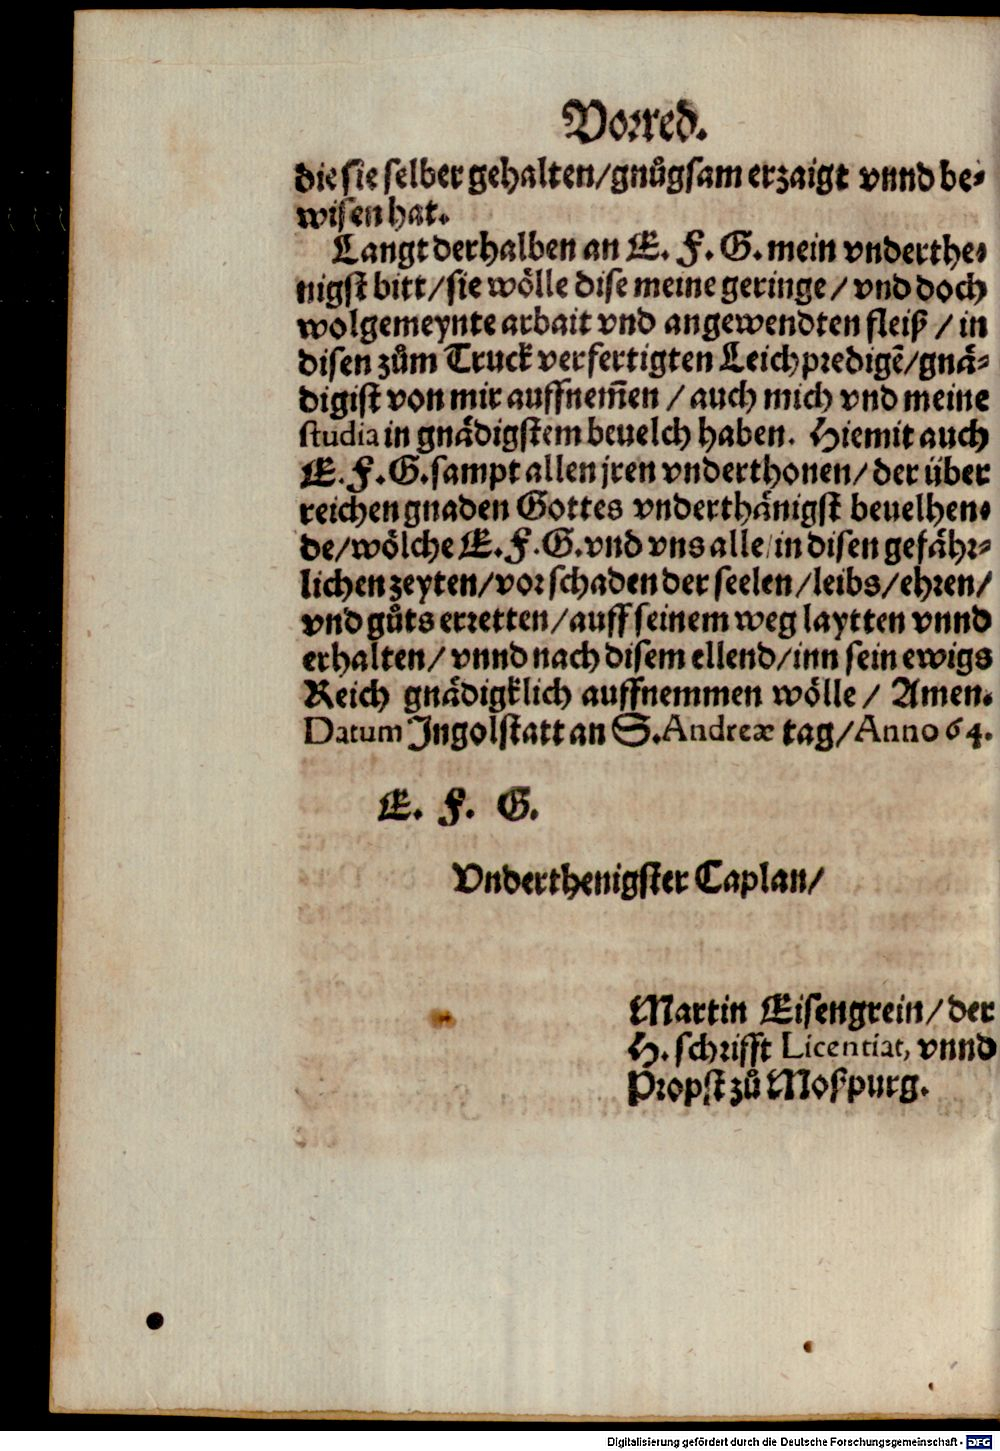 Vorred.
die sie selber gehalten/gnůgsam erzaigt vnnd be-
wisen hat.
Langt derhalben an E. F. G. mein vnderthe-
nigst bitt/sie wölle dise meine geringe/ vnd doch
wolgemeynte arbait vnd angewendten fleiß / in
disen zům Truck verfertigten Leichpredigẽ/gnä-
digist von mir auffnem̃en / auch mich vnd meine
studia in gnädigstem beuelch haben. Hiemit auch
E. F. G. sampt allen jren vnderthonen/ der über
reichen gnaden Gottes vnderthänigst beuelhen-
de/wölche E. F. G. vnd vns alle/in disen gefähr-
lichen zeyten/vor schaden der seelen/leibs/ehren/
vnd gůts erretten/auff seinem weg laytten vnnd
erhalten/ vnnd nach disem ellend/inn sein ewigs
Reich gnädigklich auffnemmen wölle / Amen.
Datum Ingolstatt an S. Andreæ tag/Anno 64.
E. F. G.
Vnderthenigster Caplan/
Martin Eisengrein/der
H. schrifft Licentiat, vnnd
Propst zů Moßpurg.
Digitalisierung gefördert durch die Deutsche Forschungsgemeinschaft - DFG